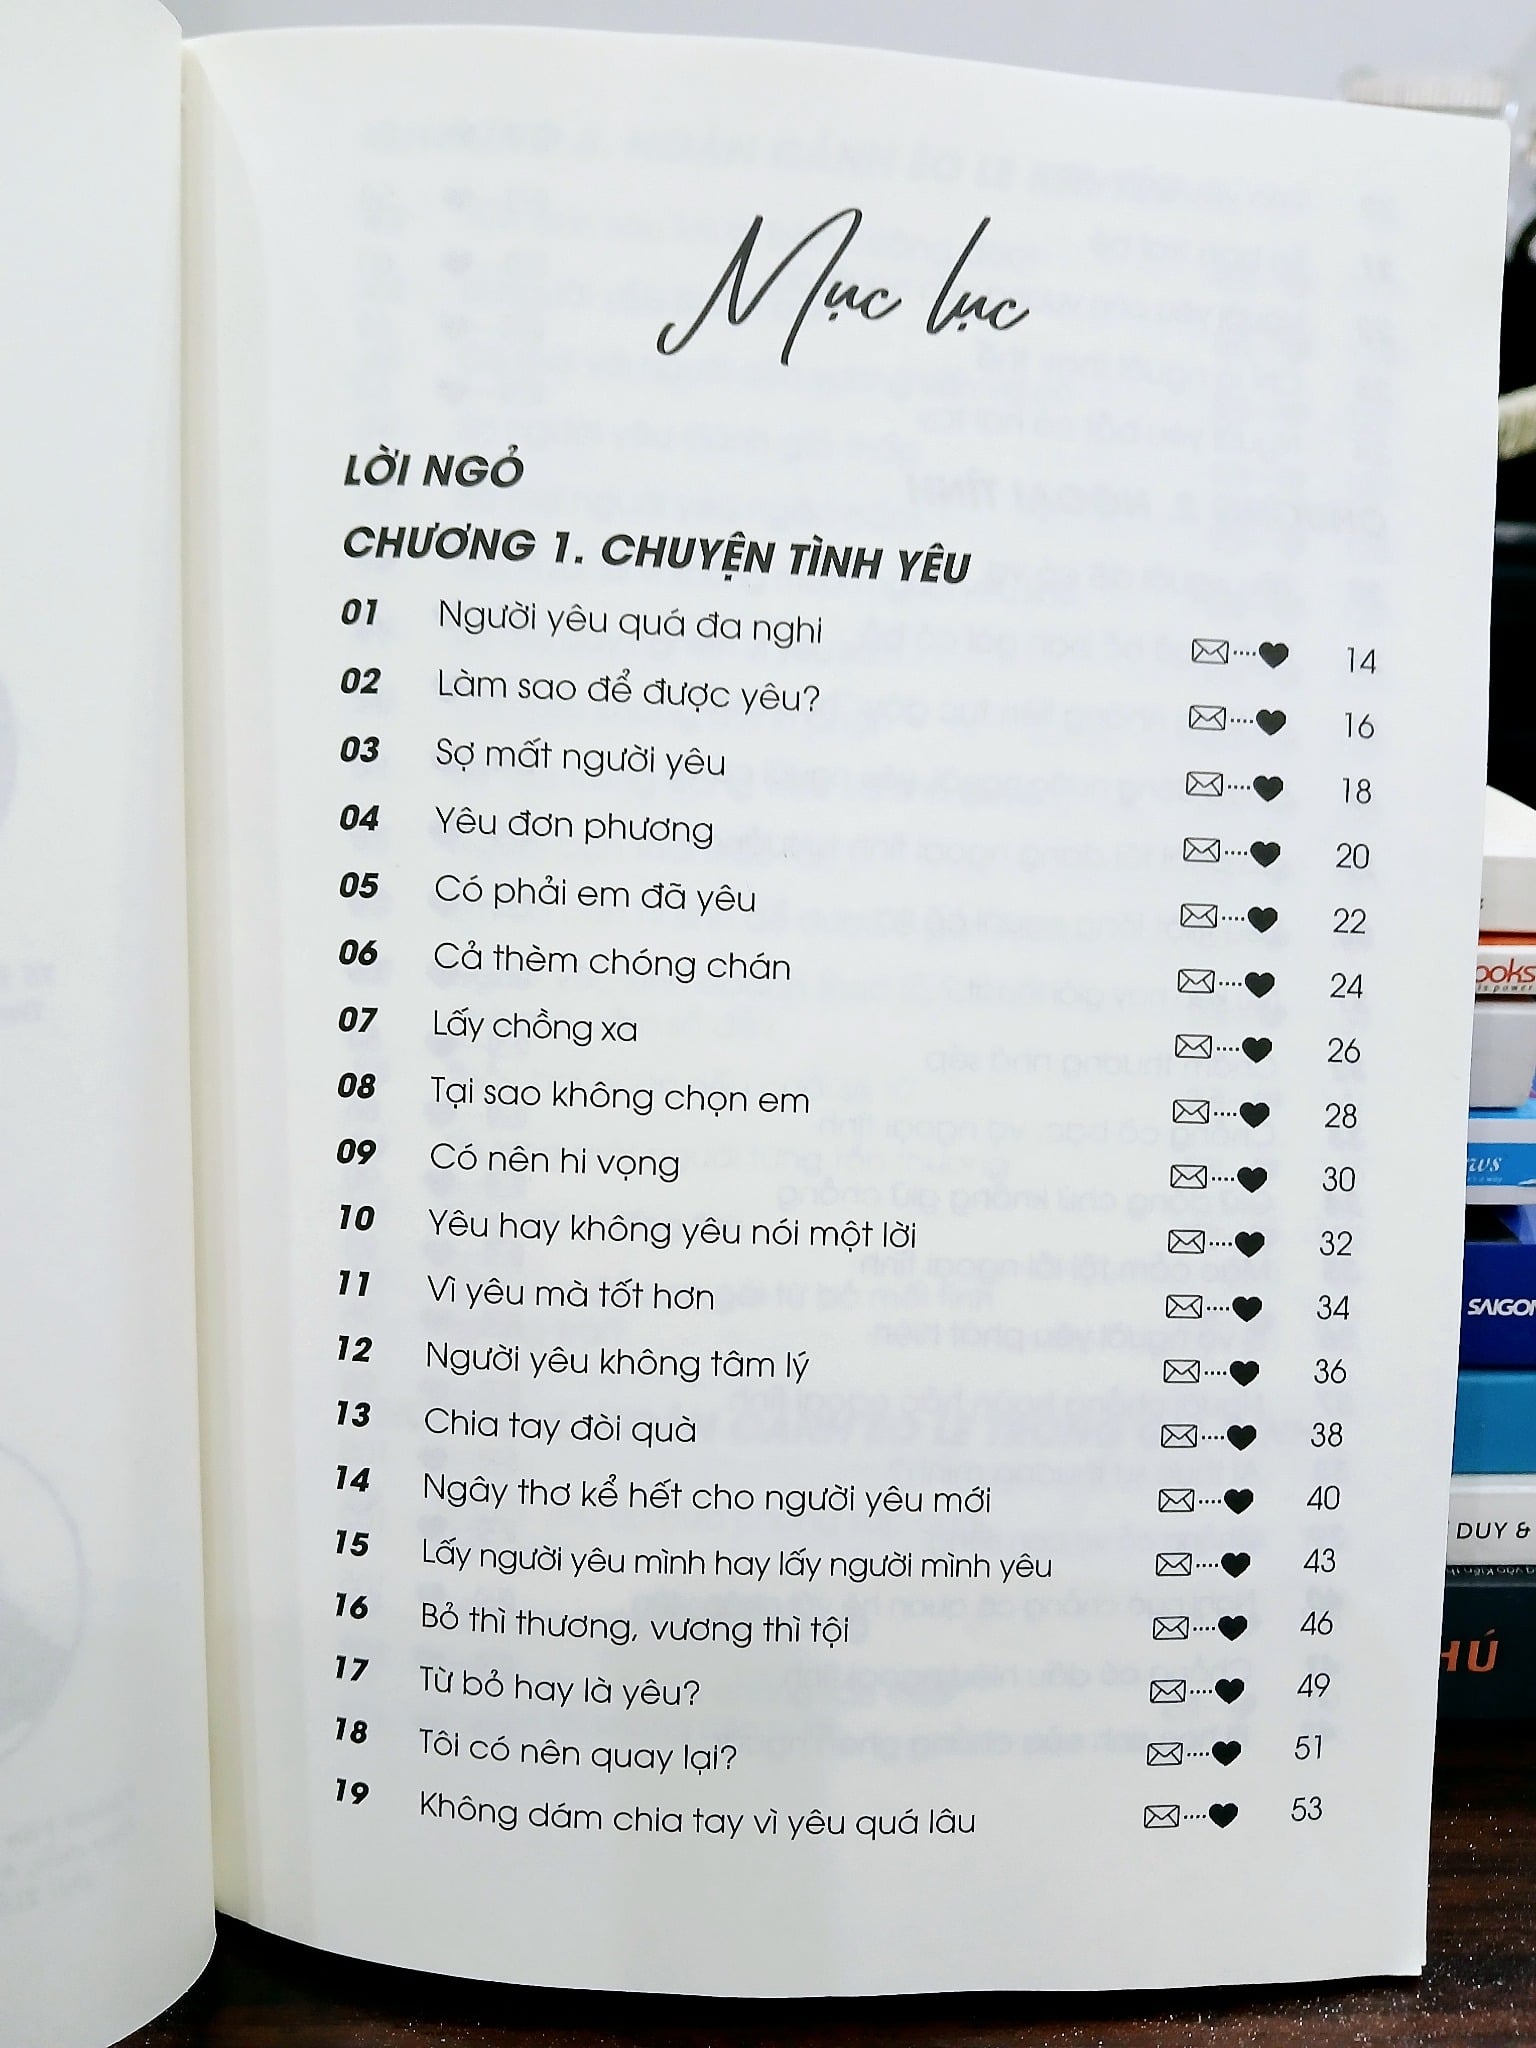 Mục lục
LỜI NGỎ
CHƯƠNG 1. CHUYỆN TÌNH YÊU
01 Người yêu quá đa nghi 14
02 Làm sao để được yêu? 16
03 Sợ mất người yêu 18
04 Yêu đơn phương 20
05 Có phải em đã yêu 22
06 Cả thèm chóng chán 24
07 Lấy chồng xa 26
08 Tại sao không chọn em 28
09 Có nên hi vọng 30
10 Yêu hay không yêu nói một lời 32
11 Vì yêu mà tốt hơn 34
12 Người yêu không tâm lý 36
13 Chia tay đòi quà 38
14 Ngây thơ kể hết cho người yêu mới 40
15 Lấy người yêu mình hay lấy người mình yêu 43
16 Bỏ thì thương, vương thì tội 46
17 Từ bỏ hay là yêu? 49
18 Tôi có nên quay lại? 51
19 Không dám chia tay vì yêu quá lâu 53
ooks
is power
ws
SAIGON
DUY &
HÚ